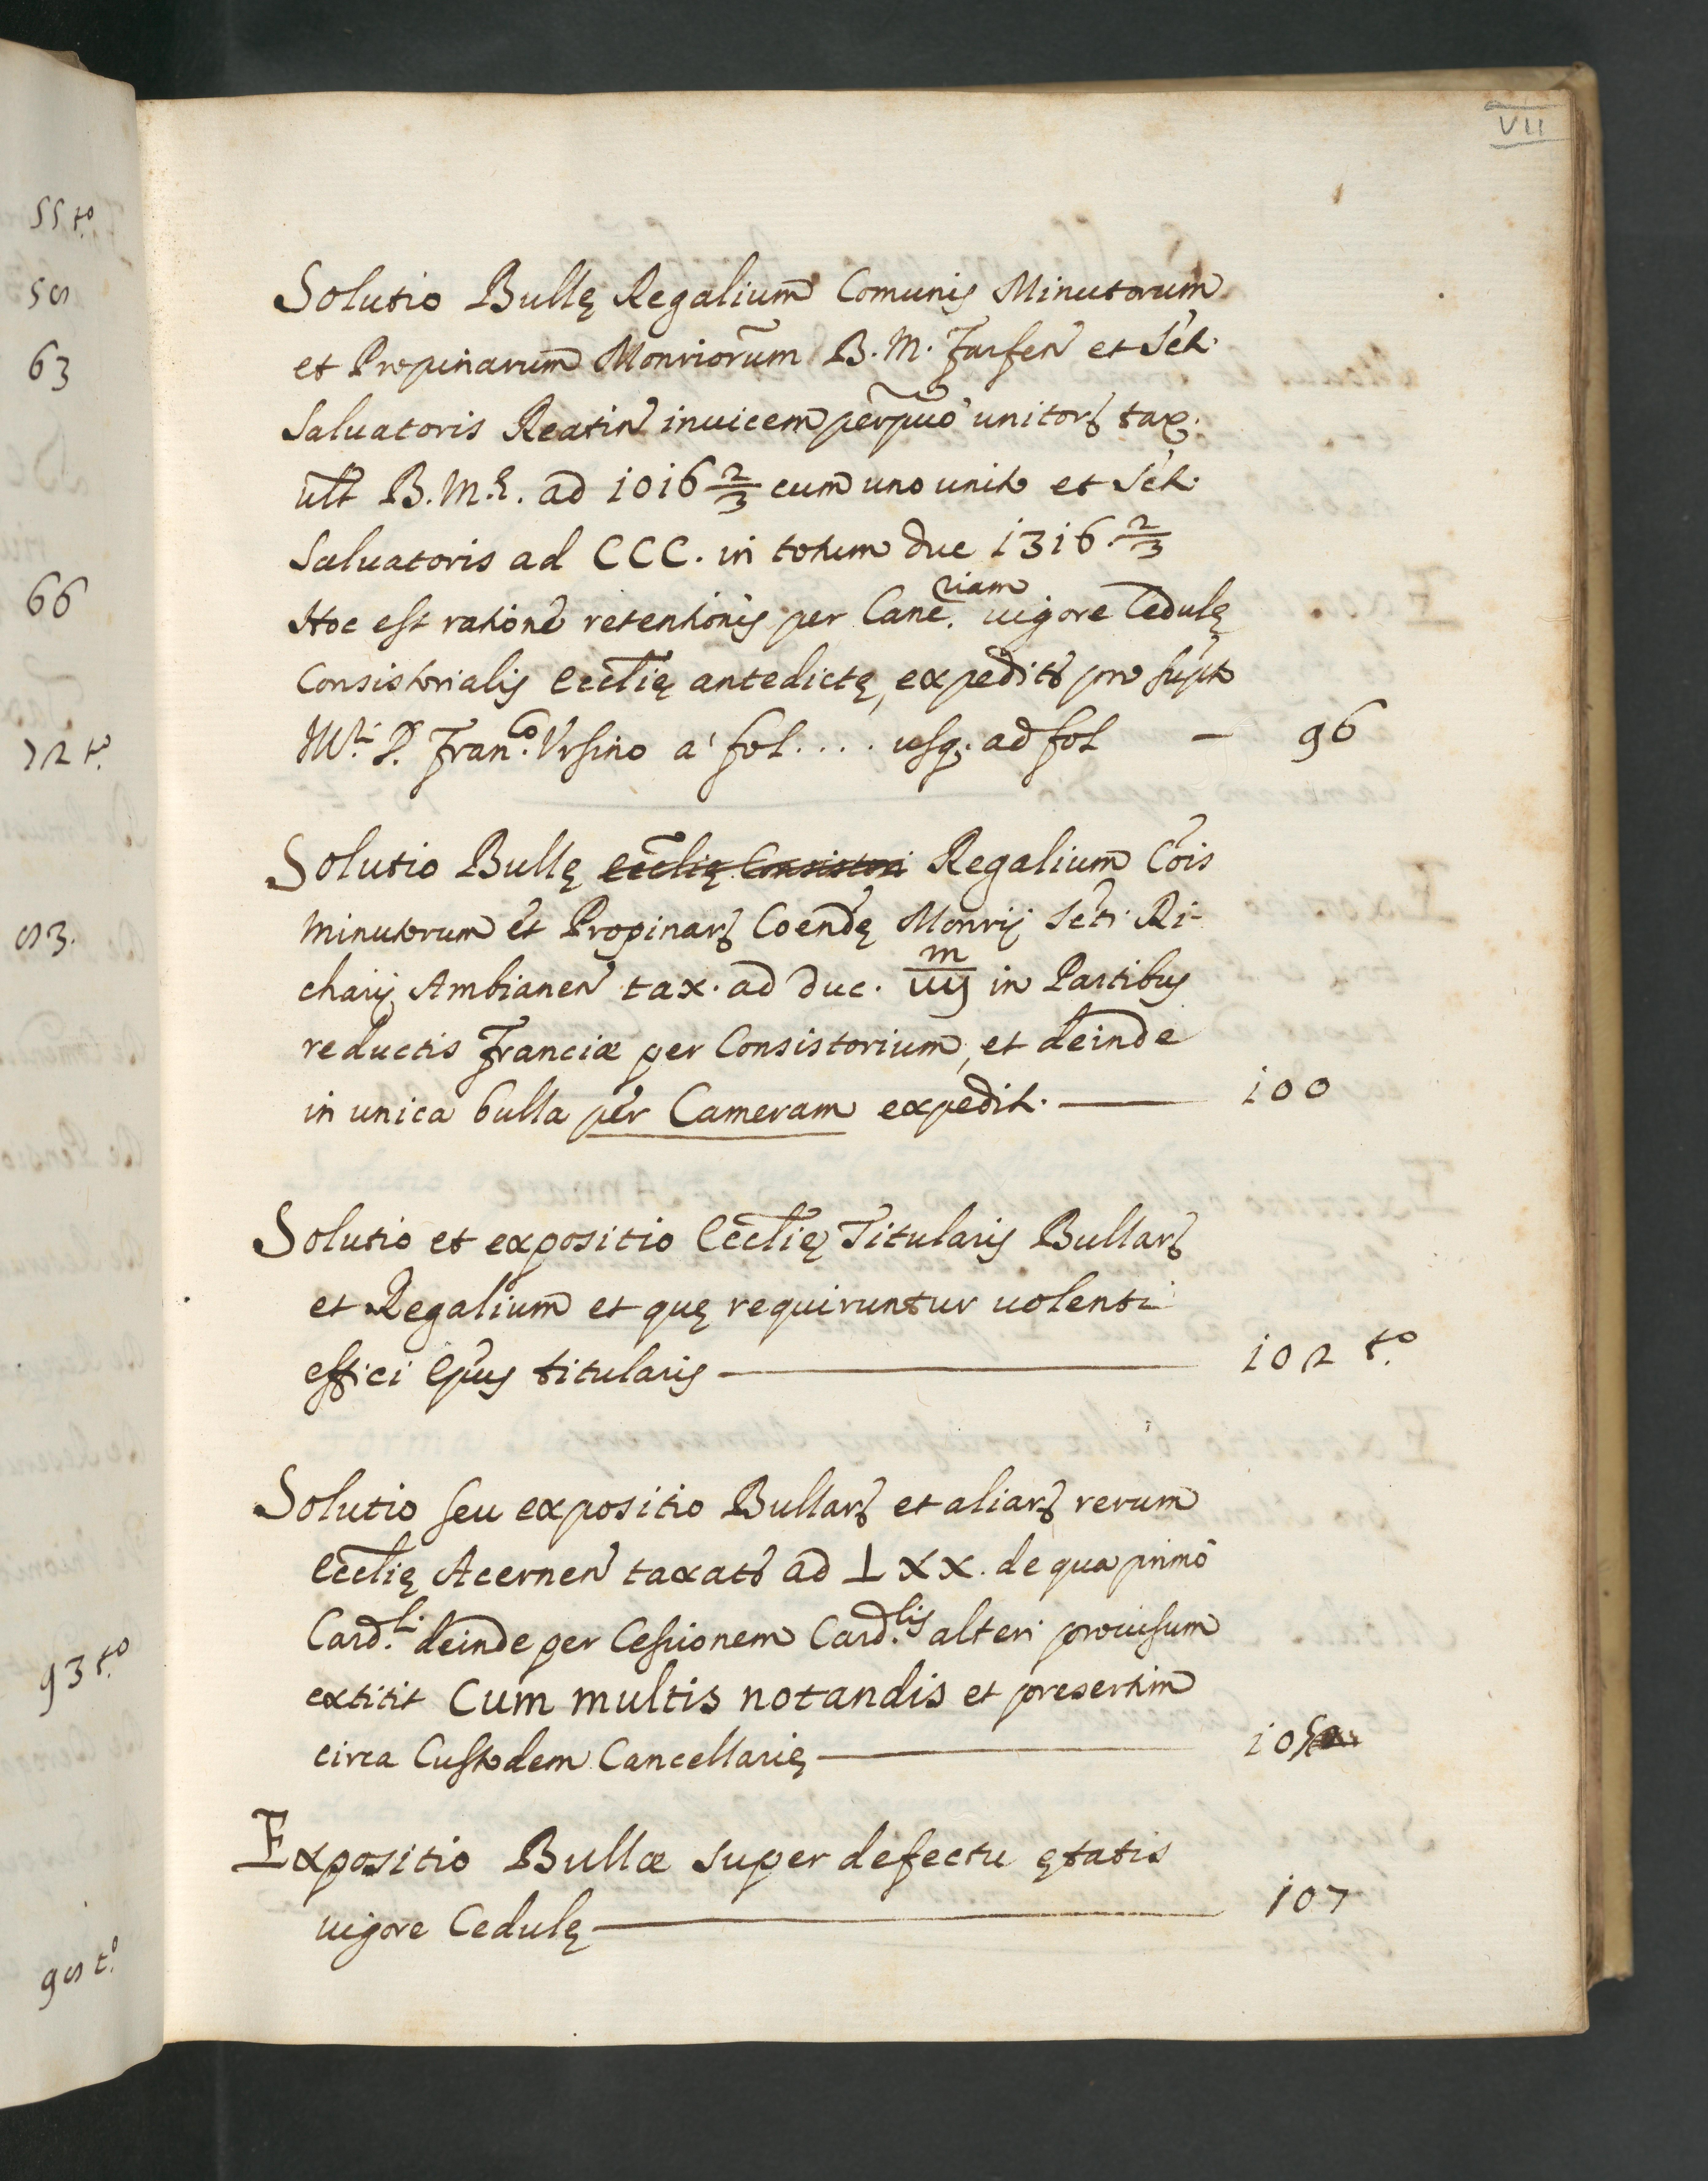 VII
Solutio Bullę Regalium Comunis Minutorum
et Propinarum Monriorum B. M. Farfen et Scti
Saluatoris Reatin inuicem perpuo unitor tax.
ult B. M. ad 1016 2/3 cum uno unito et Scti
Saluatoris ad CCC. in totum duc 1316. 2/3
Hoc est ratione retentionis per Canc.riam uigore Cedulę
Consistorialis Ecclię antedictę, expedit pro supto
D. Fran.co Vrsino a' fol. . . . usq. ad fol — 96
Solutio Bullę Ecclię Consistori Regalium Cois
minutorum et Propinar Coendę Monrij Scti Ri-
charij Ambianen tax. ad duc. in Partibus
reductis Franciæ per Consistorium, et deinde
in unica bulla per Cameram expedit. — 100
Solutio et expositio Ecclię Titularis Bullar
et Regalium et quę requiruntur uolenti
effici Epus titularis — 102 t.o
Solutio seu expositio Bullar et aliar rerum
Ecclię Acernen taxat ad LXX. de qua primo
Card.li deinde per Cessionem Card.lis alteri prouisum
extitit Cum multis notandis et presertim
circa Custodem Cancellarię — 105
Expositio Bullæ super defectu ętatis
uigore Cedulę — 107
55 t.o
58
63
66
72 t.o
83.
93 t.o
98 t.o